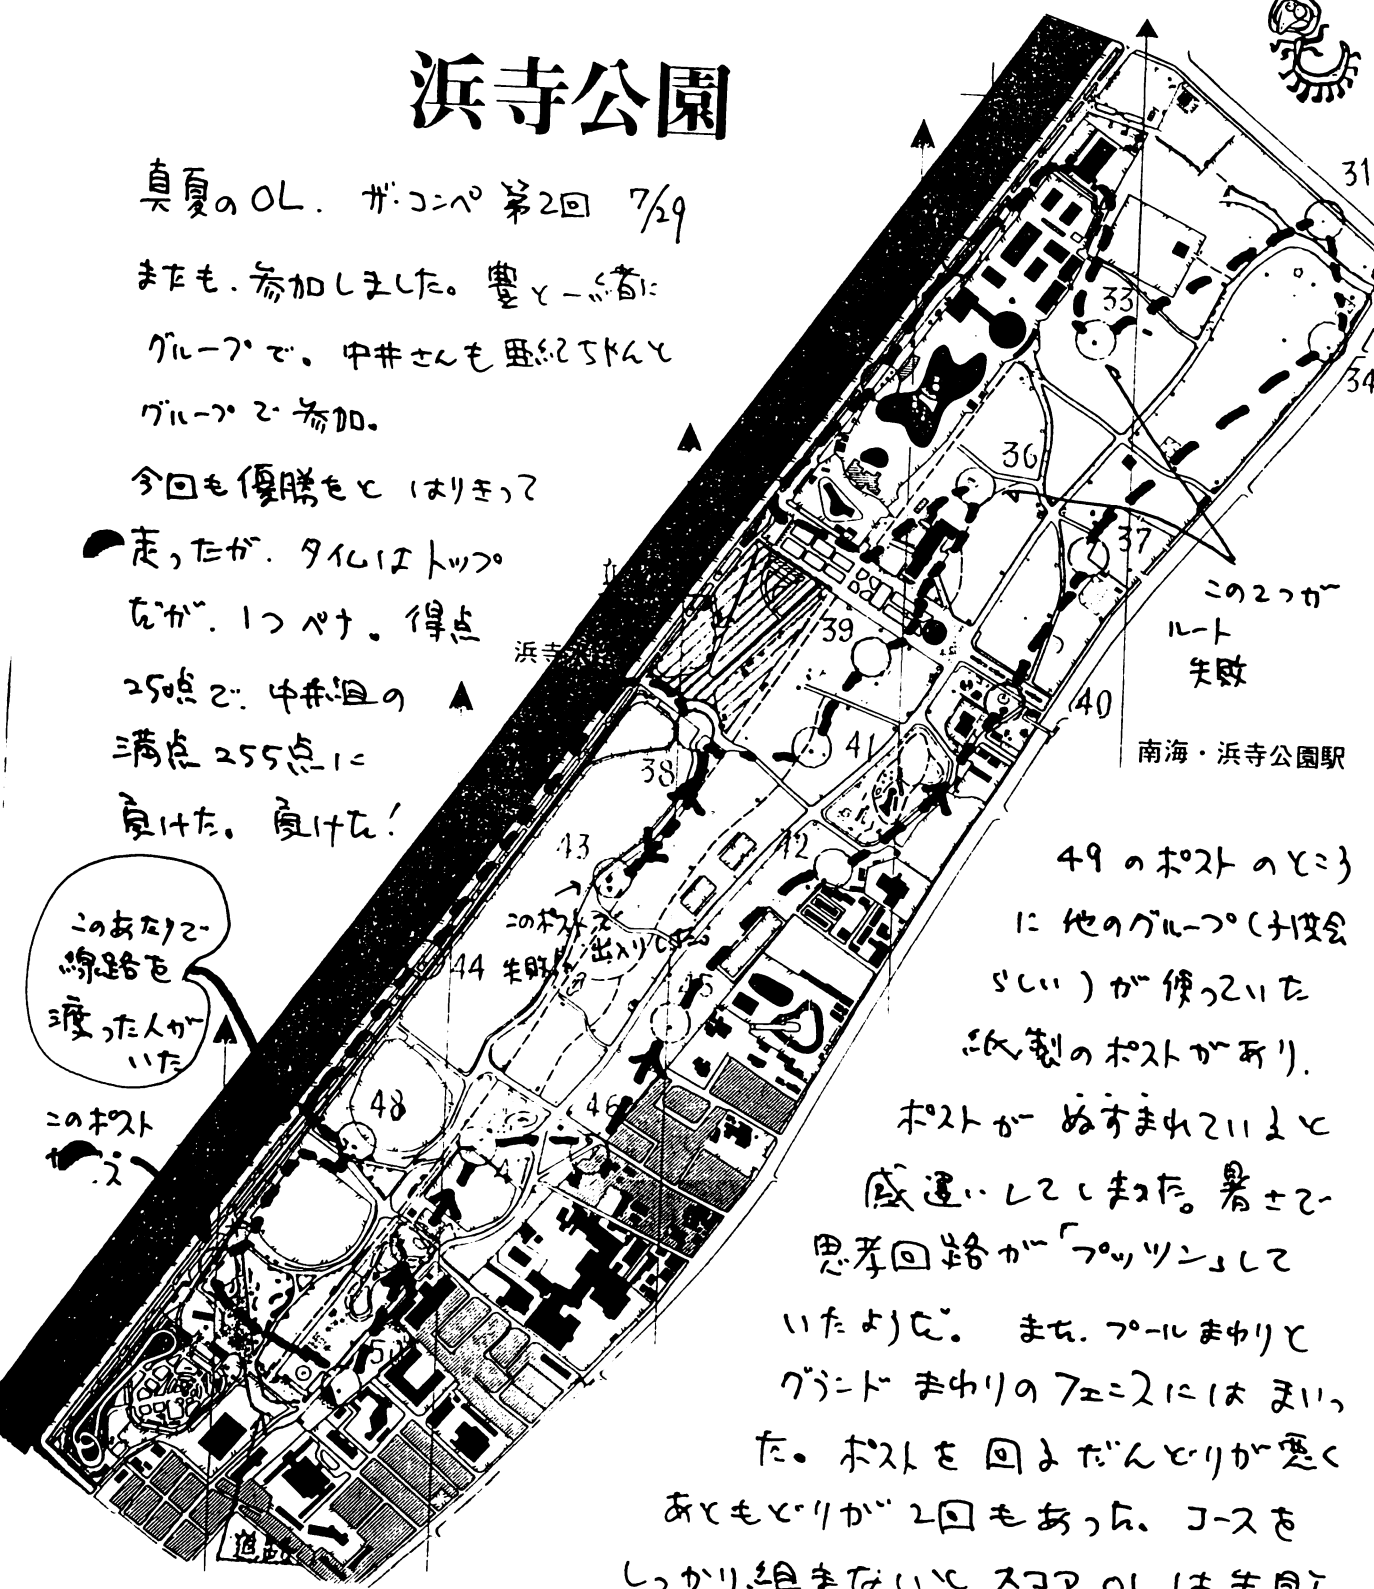 浜寺公園
真夏のOL. ザ・コンペ 第2回 7/29
またも、参加しました。豊と一緒に
グループで。中井さんも亜紀ちゃんと
グループで参加。
今回も優勝をと はりきって
走ったが、タイムはトップ
だが、1つペナ。得点
250点で、中井組の
満点255点に
負けた。負けた!
このあたりで
線路を
渡った人が
いた
このポスト
浜寺水
31
33
34
36
37
この2つが
ルート
失敗
39
40
41
南海・浜寺公園駅
38
43
42
このポスト
出入りした
失敗
44
45
46
48
50
道路
49のポストのところ
に他のグループ(子供会
らしい)が使っていた
紙製のポストがあり、
ポストがぬすまれていると
感違いしてしまった。暑さで
思考回路が「プッツン」して
いたようだ。また、プールまわりと
グランドまわりのフェンスにはまいっ
た。ポストを回るだんどりが悪く
あともどりが2回もあった。コースを
しっかり組まないとスコアOLは失敗